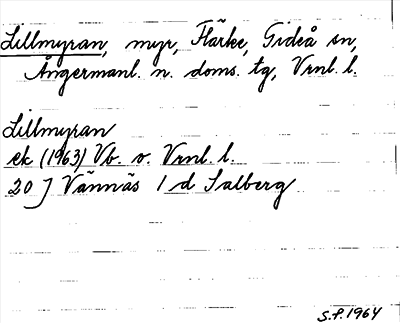 Lillmyran, myr, Flärke, Gideå sn,
Ångermanl. n. doms. tg, Vrnl. l.
Lillmyran
ek (1963) Vb. o. Vrnl. l.
20 J Vännäs 1 d Salberg
S.P. 1964